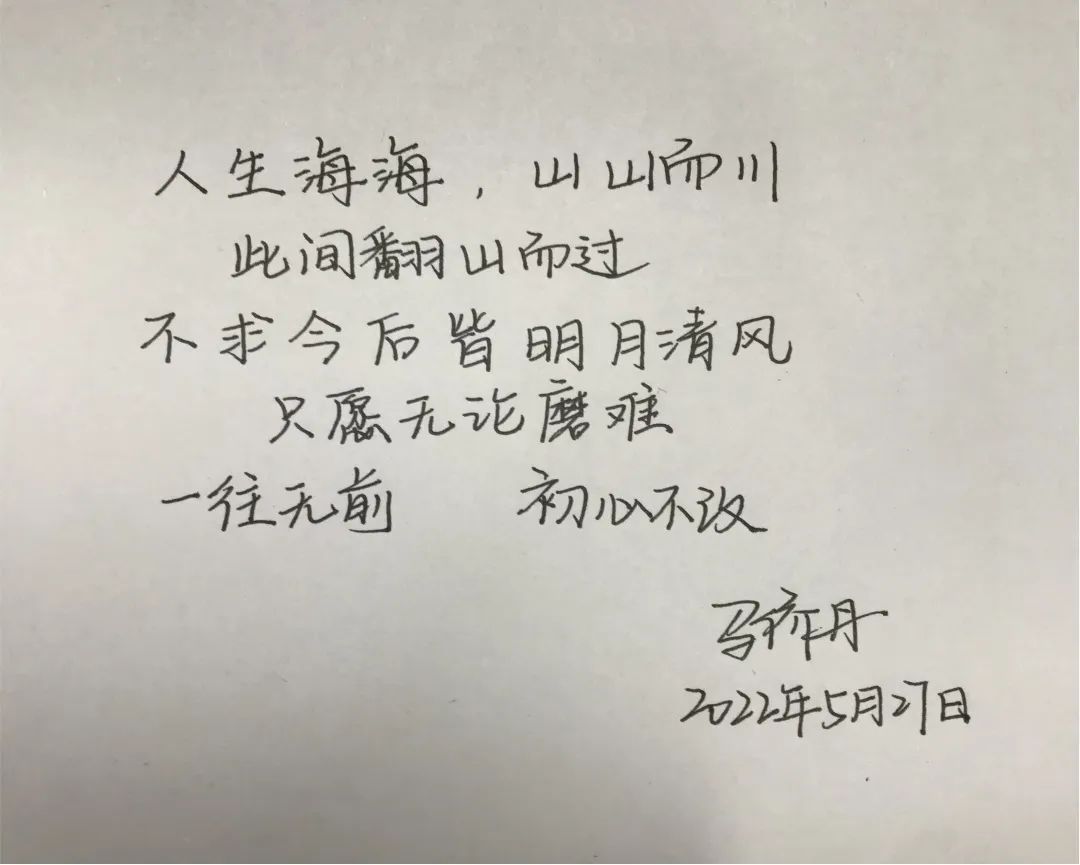 人生海海，山山而川
此间翻山而过
不求今后皆明月清风
只愿无论磨难
一往无前 初心不改
马 丹
2022年5月27日